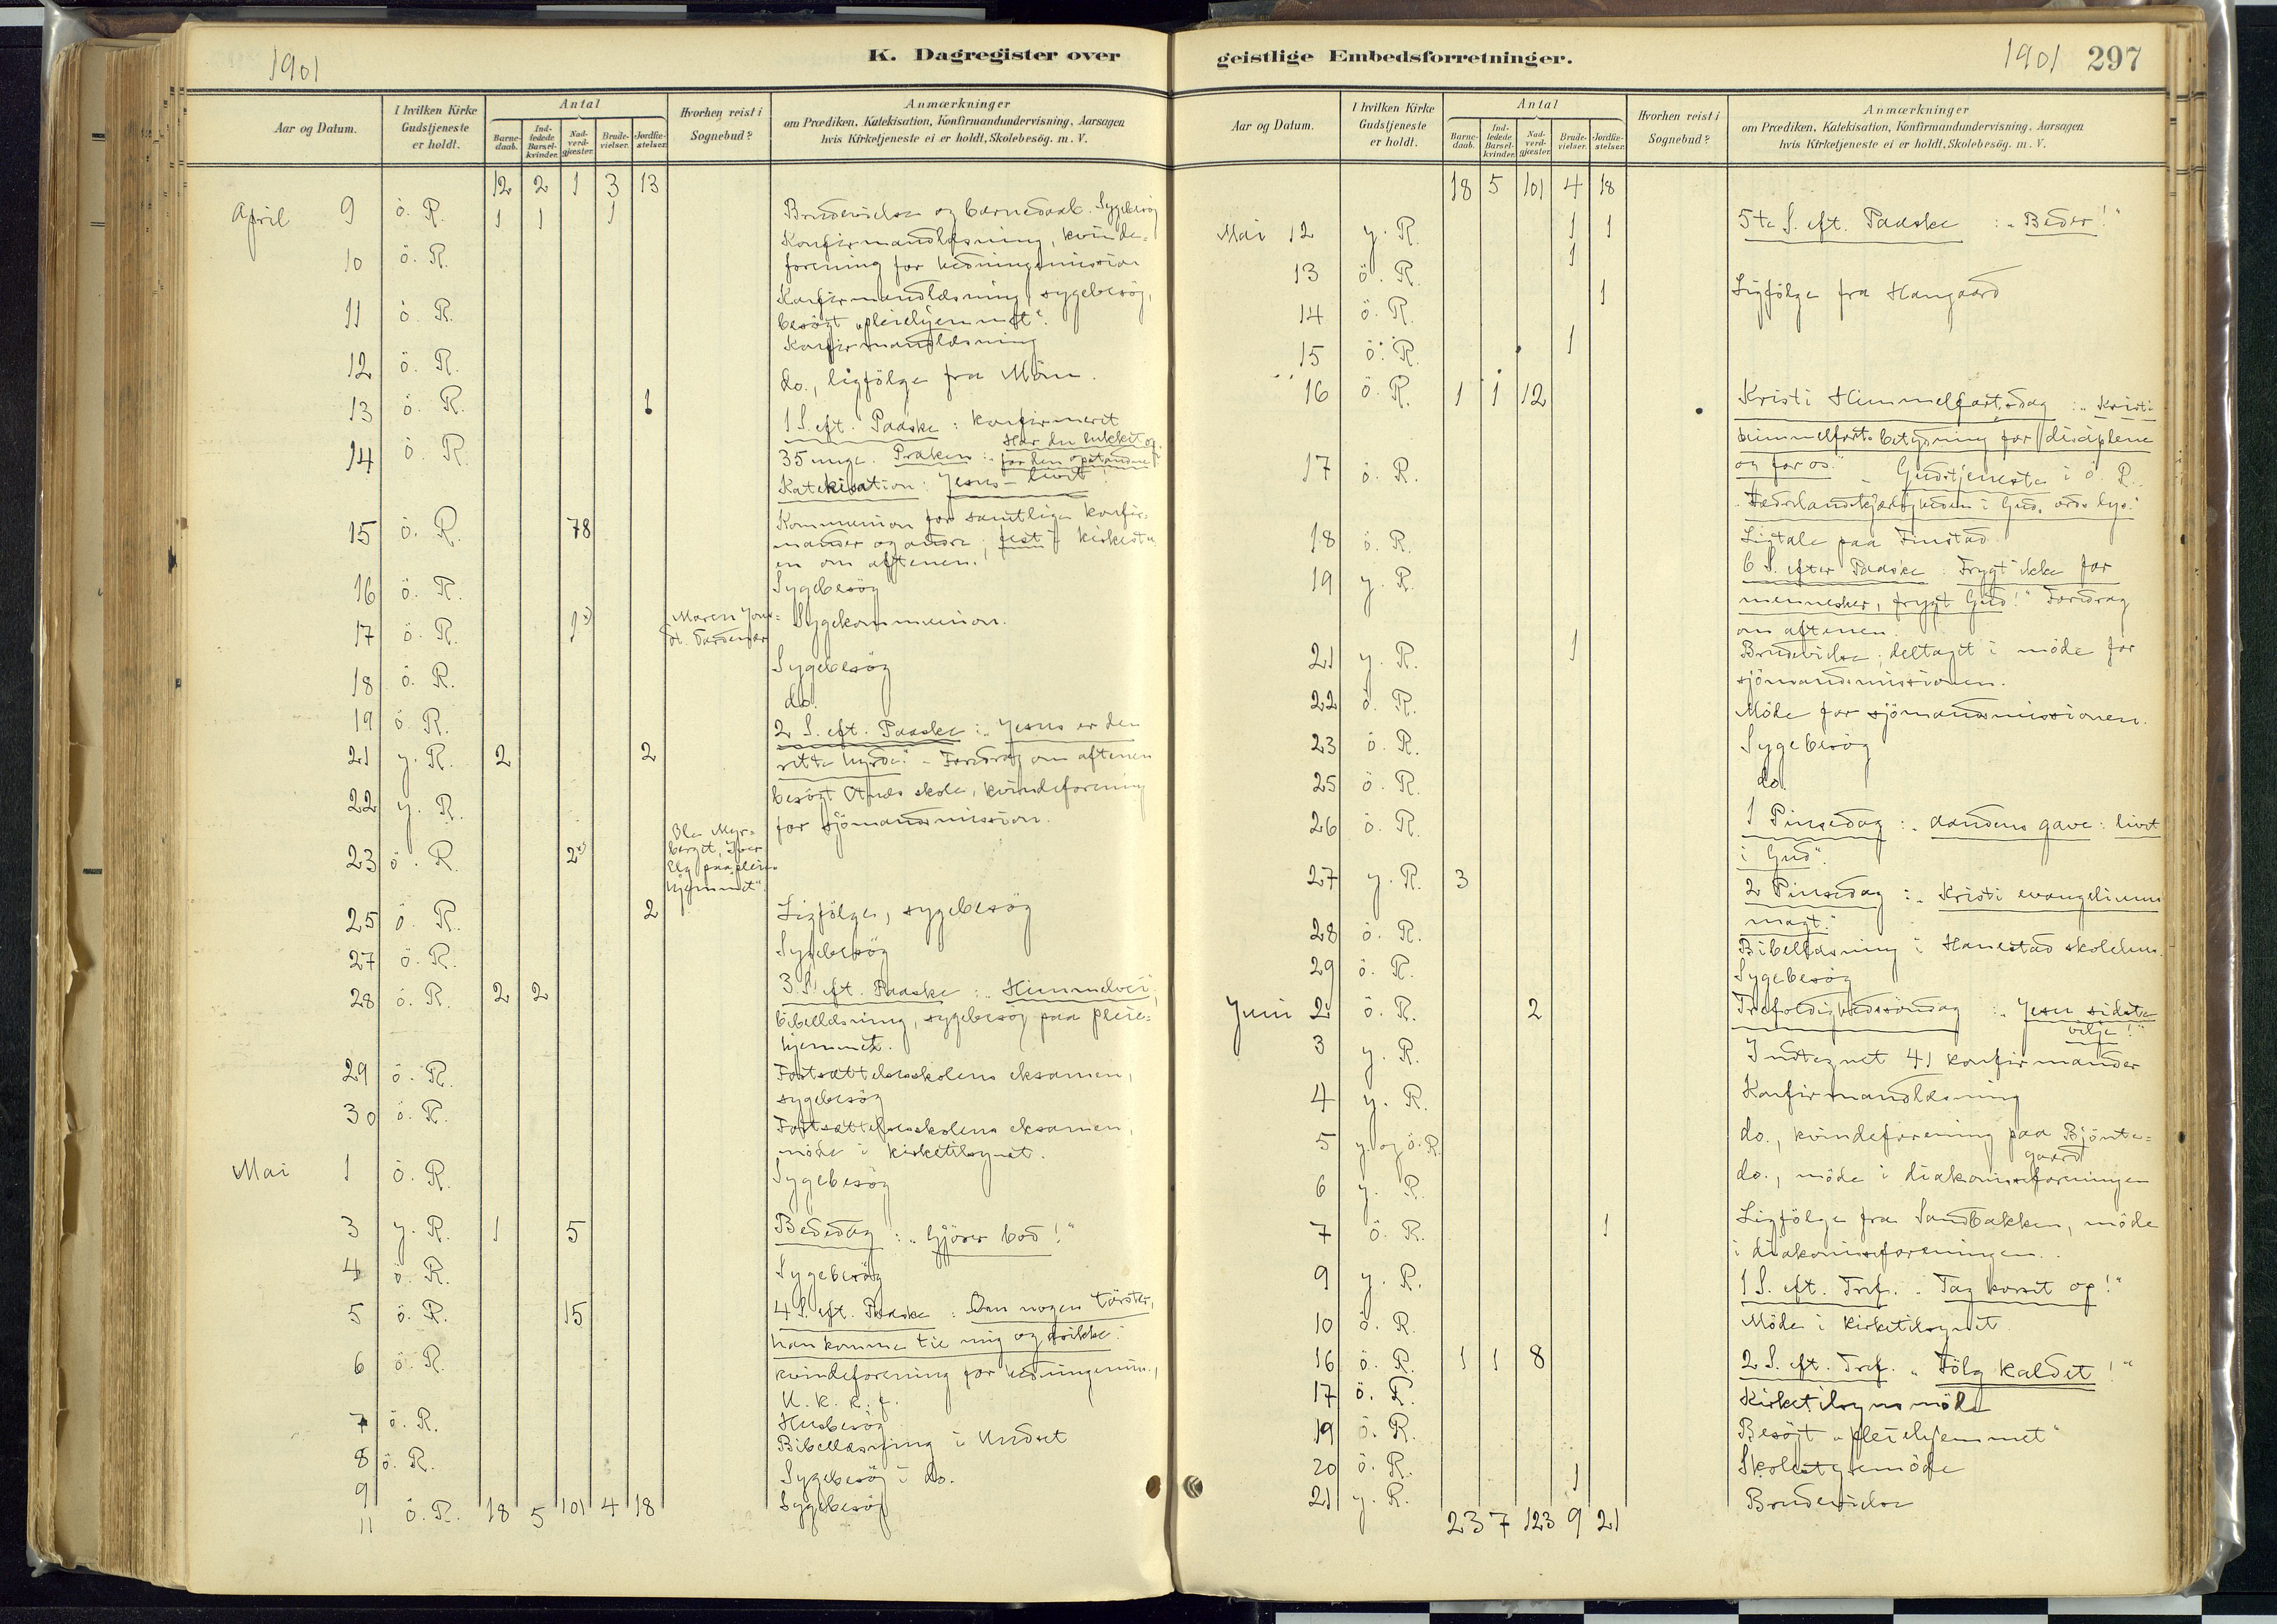 1901
K. Dagregister over
Aar og Datum.
I hvilken Kirke Gudstjeneste er holdt.
Antal
Barnedaab.
Indledede Barselkvinder.
Nadverdgjæster.
Brudevielser.
Jordfæstelser.
Hvorhen reist i Sognebud?
Anmærkninger
om Prædiken, Katekisation, Konfirmandundervisning, Aarsagen
hvis Kirketjeneste ei er holdt, Skolebesög. m. V.
12 2 1 3 13
April 9 ö. R. 1 1 1 Brudevielse og barnedaab. Sygebesög
Konfirmandlæsning, kvinde=
10 ö. R. forening for hedningemission
Konfirmandlæsning, sygebesög,
11 ö. R. besögt "pleiehjemmet".
Konfirmandlæsning
12 ö. R.
do., ligfölge fra Mörn.
13 ö. R. 1
1 S. eft. Paaske: konfirmert
14 ö. R. 35 unge. Præken: "Har du lukket op
for den opstandne?"
Katekisation: Jesus - livet!
15 ö. R. 78 Kommunion for samtlige konfir=
mander og andre; fest i kirkestu
en om aftenen.
16 ö. R. Sygebesög
17 ö. R. 1x) Maren Jons=
dt. Sygekommunion.
18 ö. R. Sygebesög
19 ö. R. do.
2 S. eft. Paaske: "Jesus er den
21 y. R. 2 2 rette hyrde." - Foredrag om aftenen
22 y. R. besögt Aaes skole, kvindeforening
for sjömandsmission.
23 ö. R. 2x) Ole Myr=
berget, Iver
Elg paa pleie=
hjemmet".
25 ö. R. 2 Ligfölge, sygebesög
27 ö. R. Sygebesög
28 ö. R. 2 2 3 S. eft. Paaske: "Himmelvei,
bibellæsning, sygebesög paa pleie=
hjemmet.
29 ö. R. Fortsættelsesskolens eksamen,
sygebesög
30 ö. R. Fortsættelsesskolens eksamen,
möde i kirketilsynet.
Mai 1 ö. R. Sygebesög
3 y. R. 1 5 Bededag: "Gjörer bod!"
4 ö. R. Sygebesög
5 ö. R. 15 4 S. eft. Paaske: Om nogen törster,
han komme til mig og drikke.
6 ö. R. kvindeforening for hedningemis.,
U. K. R. f.
7 ö. R. Husbesög
Bibellæsning i Undset
8 ö. R.
9 Sygebesög i do.
11 ö. R. 18 5 101 4 18 Sygebesög
geistlige Embedsforretninger.
1901 297
Aar og Datum.
I hvilken Kirke Gudstjeneste er holdt.
Antal
Barnedaab.
Indledede Barselkvinder.
Nadverdgjæster.
Brudevielser.
Jordfæstelser.
Hvorhen reist i Sognebud?
Anmærkninger
om Prædiken, Katekisation, Konfirmandundervisning, Aarsagen
hvis Kirketjeneste ei er holdt, Skolebesög. m. V.
18 5 101 4 18
Mai 12 y. R. 1 1 5te S. eft. Paaske: "Beder!"
13 ö. R. 1
14 ö. R. 1 Ligfölge fra Haugaard
15 ö. R. 1
16 ö. R. 1 1 12 Kristi Himmelfartsdag: "Kristi
himmelfarts betydning for disciplene
og for os." - Gudstjeneste i ö. R.
17 ö. R. "Fædrelandskjærligheden i Guds ords lys."
18 ö. R. Ligtale paa Finstad
19 y. R. 6 S. efter Paaske: Frygt ikke for
mennesker, frygt Gud!" Foredrag
om aftenen.
21 y. R. 1 Brudevielse; deltaget i möde for
sjömandsmissionen.
22 ö. R. Möde for sjömandsmissionen.
23 ö. R. Sygebesög
25 ö. R. do.
26 ö. R. 1 Pinsedag: "Aandens gave: livet
i Gud".
27 y. R. 3 2 Pinsedag: "Kristi evangeliums
magt."
28 ö. R. Bibellæsning i Hanestad skolehus.
29 ö. R. Sygebesög
Juni 2 ö. R. 2 Trefoldighedssöndag: "Jesu sidste
vilje!"
3 y. R. Indtegnet 41 konfirmander
4 y. R. Konfirmandlæsning
5 y. og ö. R. do., kvindeforening paa Bjönte=
gaard
6 y. R. do., möde i diakonisseforeningen
7 ö. R. 1 Ligfölge fra Sandbakken, möde
i diakonisseforeningen.
9 y. R. 1 S. eft. Tref. "Tag korset op!"
10 ö. R. Möde i kirketilsynet
16 ö. R. 1 1 8 2 S. eft. Tref. "Fölg kaldet!"
17 ö. R. Kirketilsynsmöde
19 ö. R. Besögt "pleiehjemmet"
20 ö. R. Skolestyremöde
21 y. R. 1 Brudevielse
23 7 123 9 21